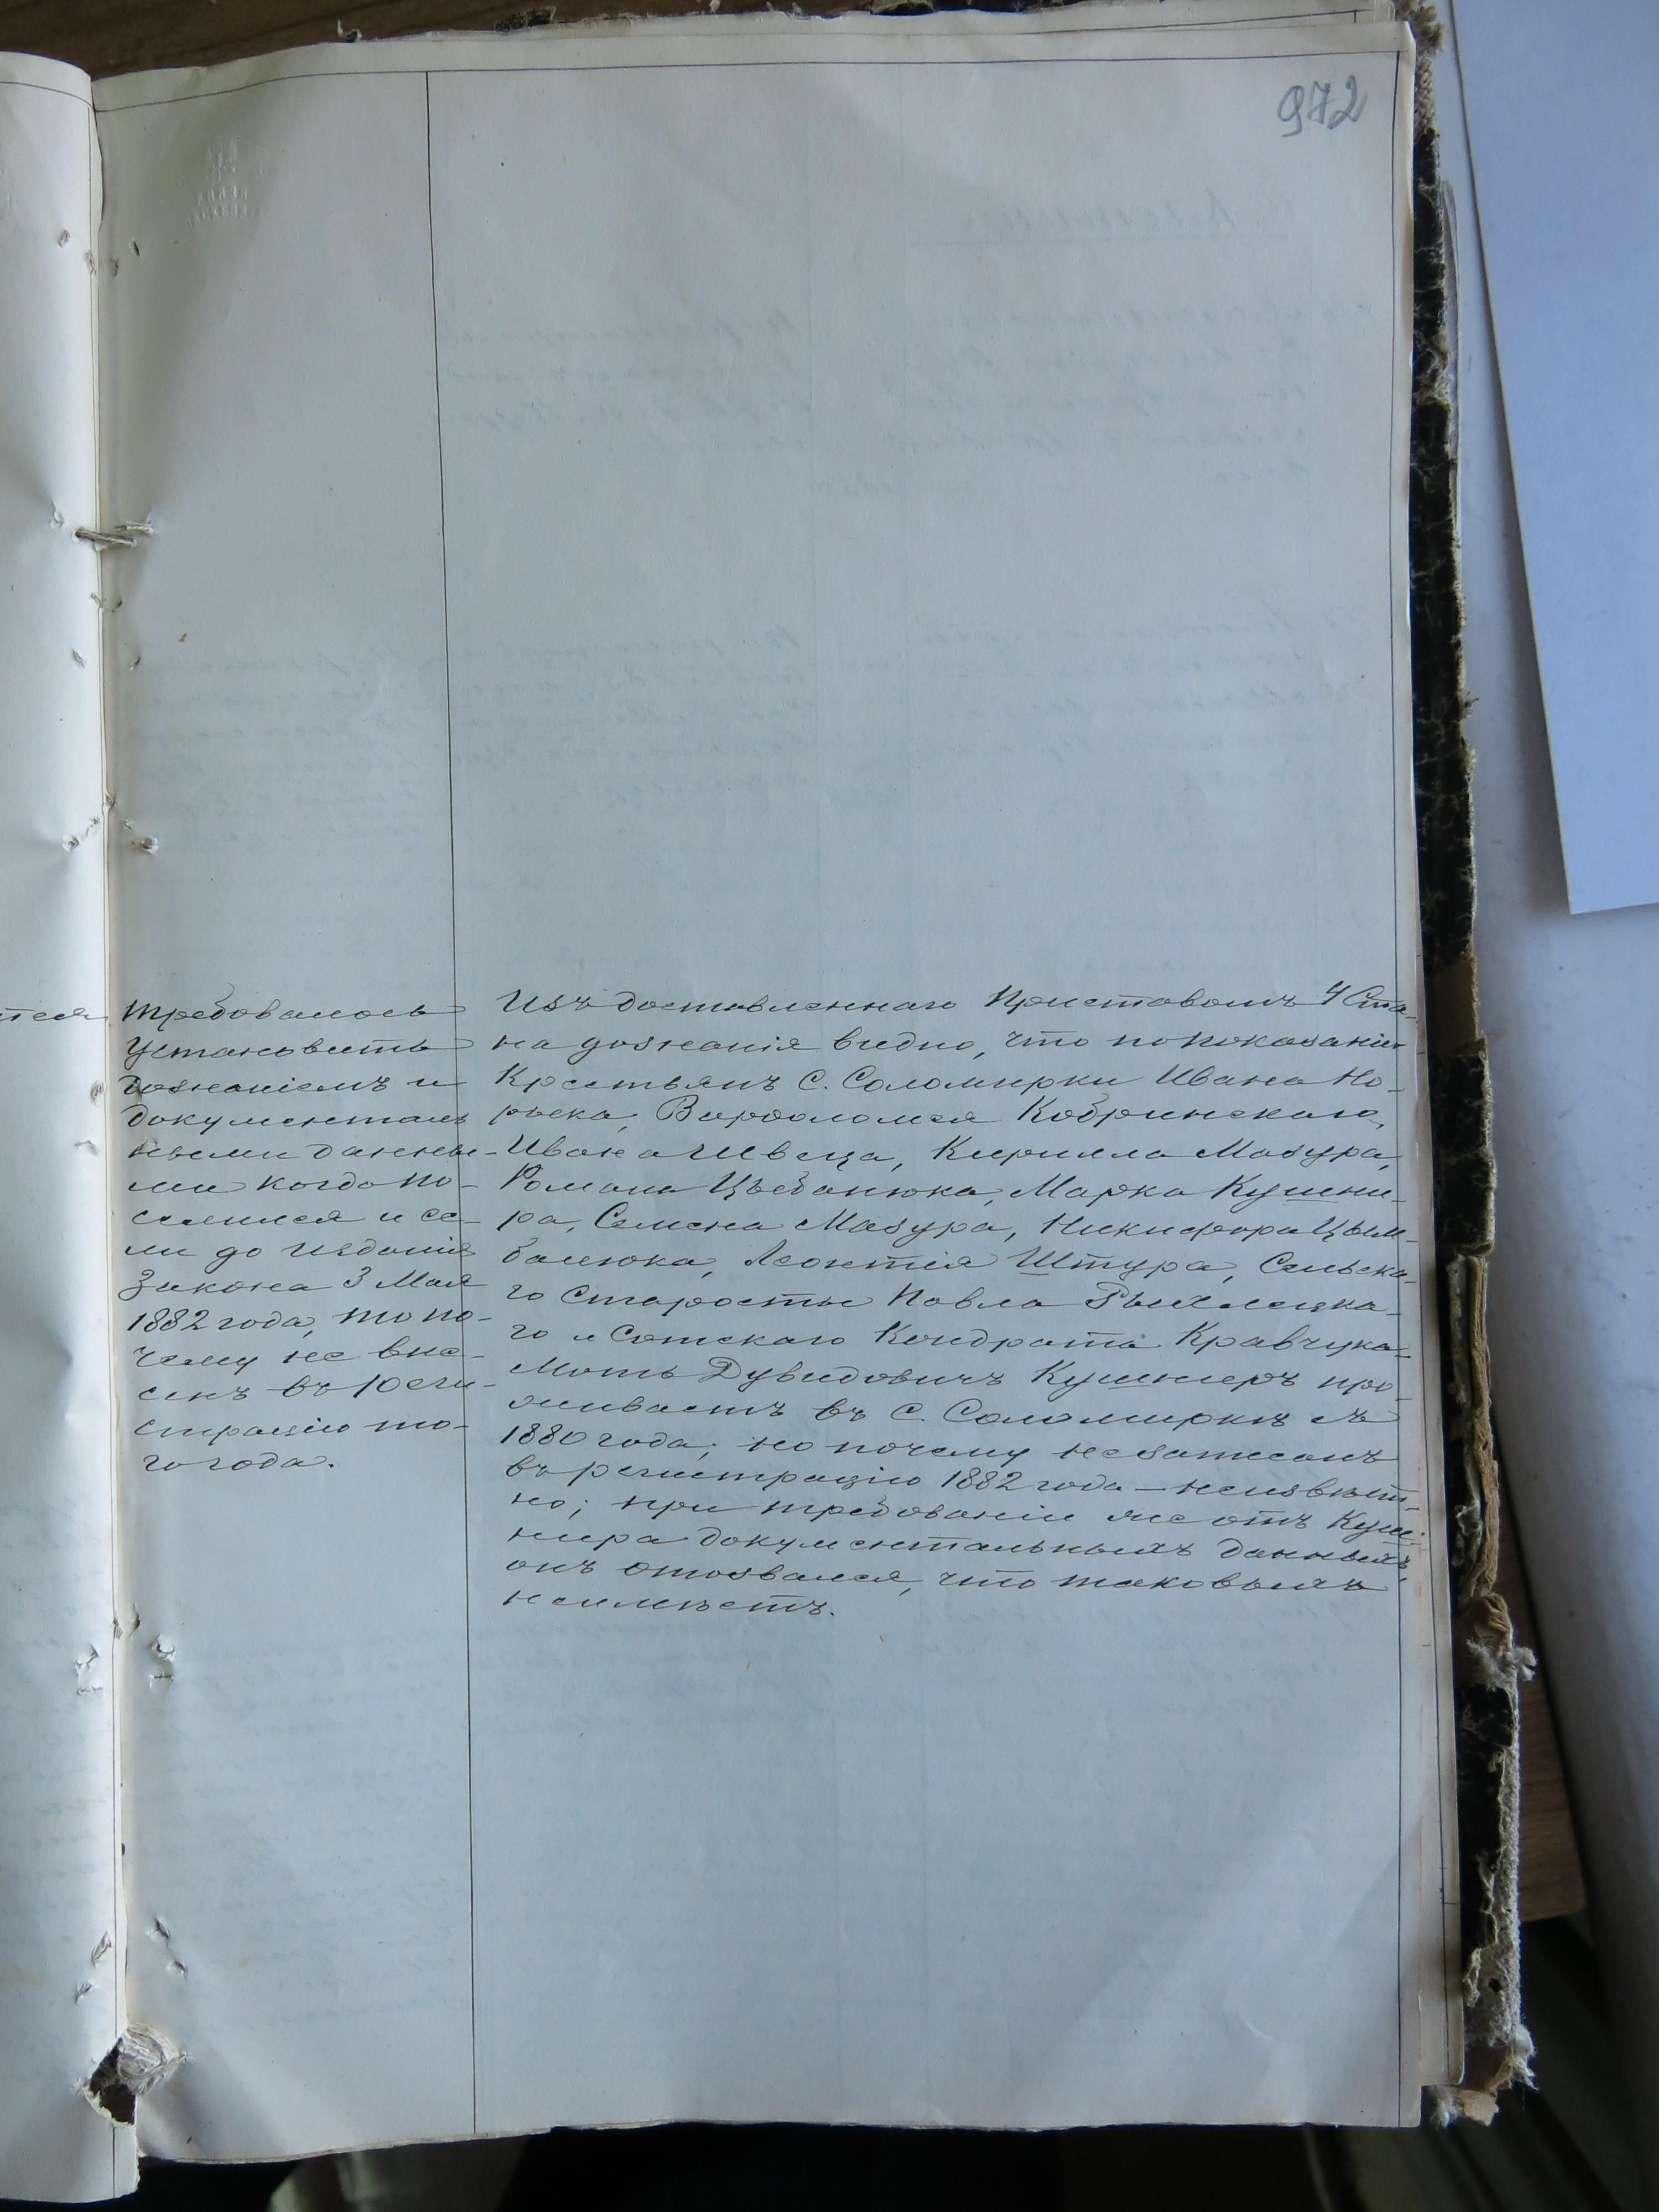 972
тся
требовалось
установить
дознаніемъ и
документаль
ными данны-
ми когда по-
селился и ес-
ли до изданія
Закона 3 Мая
1882 года, то по-
чему не вне-
сенъ въ реги-
страцію то-
го года.
Изъ доставленнаго Приставомъ 4 Ста-
на дознанія видно, что по показанію
Крестьянъ С. Соломирки Ивана
Варфоломея Кобринскаго,
Ивана Швеца, Кирилла Мазура,
Романа Цыбанюка, Марка Кушни-
ра, Семена Мазура, Никифора Цым-
балюка, Леонтія Штура, Сельска-
го Старосты Павла
го и Сотскаго Кондрата Кравчука
Моть Дувидовичъ Кушниръ про-
живаетъ въ С. Соломиркѣ съ
1880 года; но почему не записанъ
въ регистрацію 1882 года — неизвѣст-
но; при требованіи же отъ Куш-
нира документальныхъ данныхъ,
онъ отозвался, что таковыхъ
не имѣетъ.